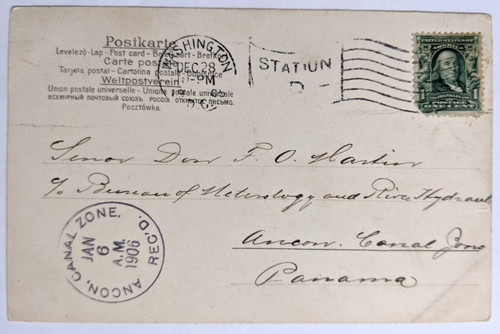 Postkarte
Levelező-Lap - Post card - Briefkaart - Brefkort
Carte postale
Tarjeta postal - Cartolina postale
Weltpostverein
Union postale universelle - Unione postale universale
ВСЕМІРНЫЙ ПОЧТОВЫЙ СОЮЗЪ. РОССІЯ. ОТКРЫТОЕ ПИСЬМО.
Pocztówka
WASHINGTON
DEC 28
PM
STATION
D
Senor Don F. O. Martin
c/o Bureau of Meterology and River Hydraul
Ancon. Canal Zone
Panama
ANCON, CANAL ZONE.
JAN
6
A.M.
1906
REC'D.